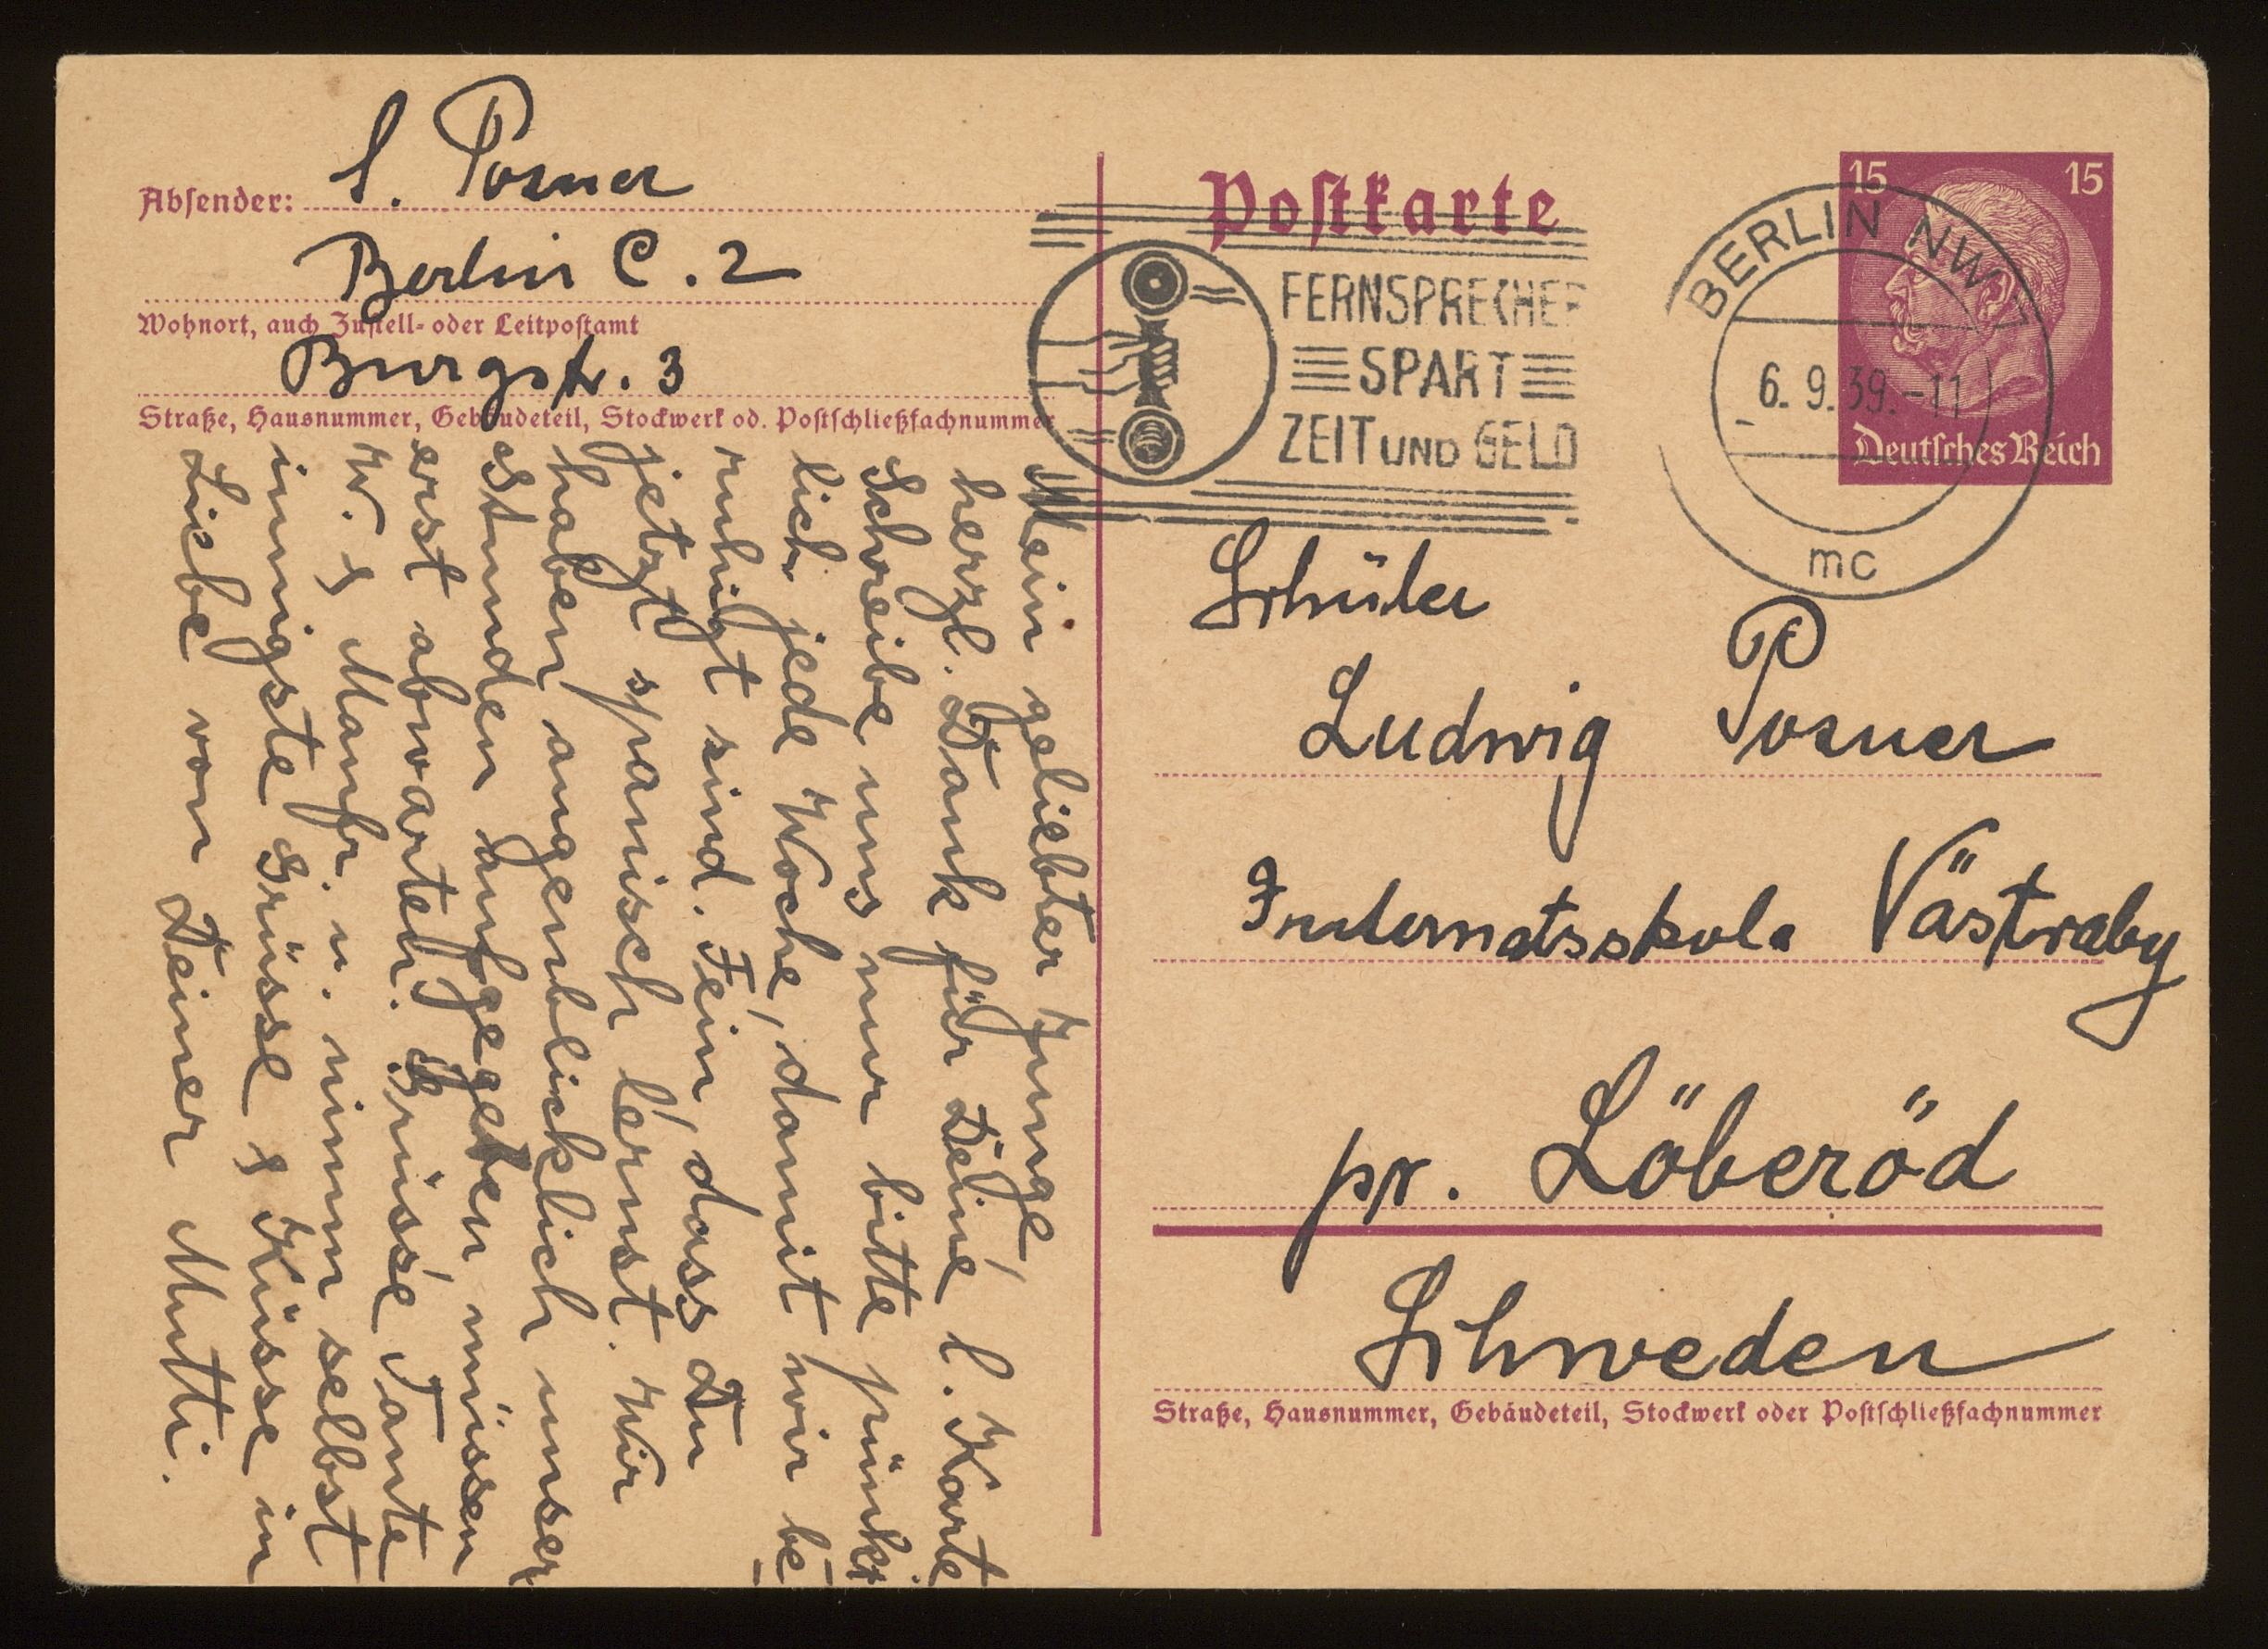 Absender: S. Posner
Berlin C. 2
Wohnort, auch Zustell- oder Leitpostamt
Burgstr. 3
Straße, Hausnummer, Gebäudeteil, Stockwerk od. Postschließfachnummer
Mein geliebter Junge,
herzl. Dank für Deine l. Karte
Schreibe uns nur bitte pünkt
lich jede Woche, damit wir be-
ruhigt sind. Fein, dass Du
jetzt spanisch lernst. Wir
haben augenblicklich unser
stunden aufgegeben, müssen
erst abwarten. Grüsse Tante
W. & Manfr. u. nimm selbst
innigste Grüsse & Küsse in
Liebe von Deiner Mutti.
Postkarte
FERNSPRECHER
SPART
ZEIT UND GELD
15 15
BERLIN NW 7
6. 9. 39.-11
mc
Deutsches Reich
Schüler
Ludwig Posner
Internatsskola Västraby
pr. Löberöd
Schweden
Straße, Hausnummer, Gebäudeteil, Stockwerk oder Postschließfachnummer